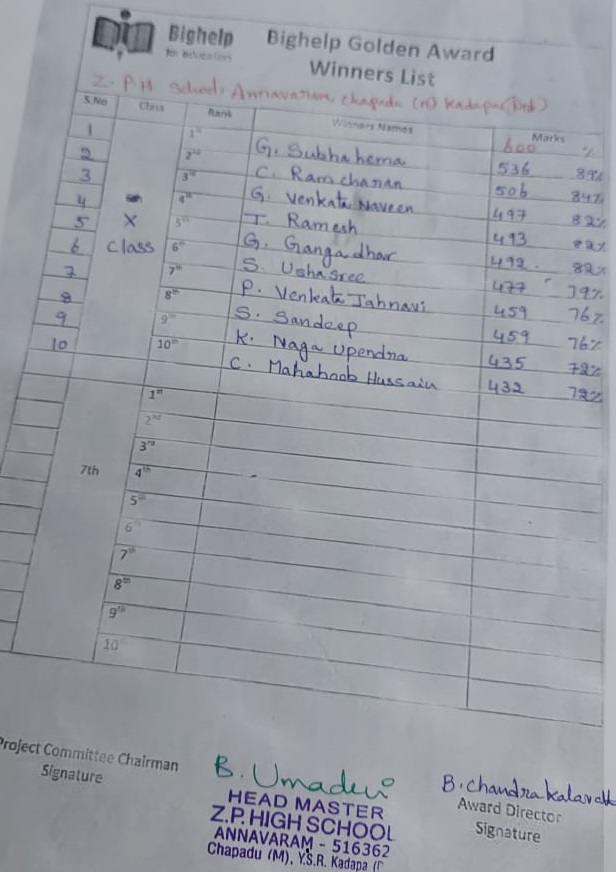 Bighelp
for education
Bighelp Golden Award
Winners List
Z.P.H School, Annavaram, Chapadu (m) Kadapa (Dist)
S.No Class Rank Winners Names Marks
600 %
1 1st G. Subhahema 536 89%
2 2nd C. Ramcharan 506 84%
3 3rd G. Venkata Naveen 497 82%
4 4th T. Ramesh 493 82%
5 X 5th G. Gangadhar 492 82%
6 Class 6th S. Ushasree 477 79%
7 7th P. Venkata Jahnavi 459 76%
8 8th S. Sandeep 459 76%
9 9th K. Naga Upendra 435 72%
10 10th C. Mahaboob Hussain 432 72%
1st
2nd
3rd
7th 4th
5th
6th
7th
8th
9th
10th
Project Committee Chairman
Signature
B. Umadevi
HEAD MASTER
Z.P. HIGH SCHOOL
ANNAVARAM - 516362
Chapadu (M), Y.S.R. Kadapa (
B. Chandrakalavath
Award Director
Signature